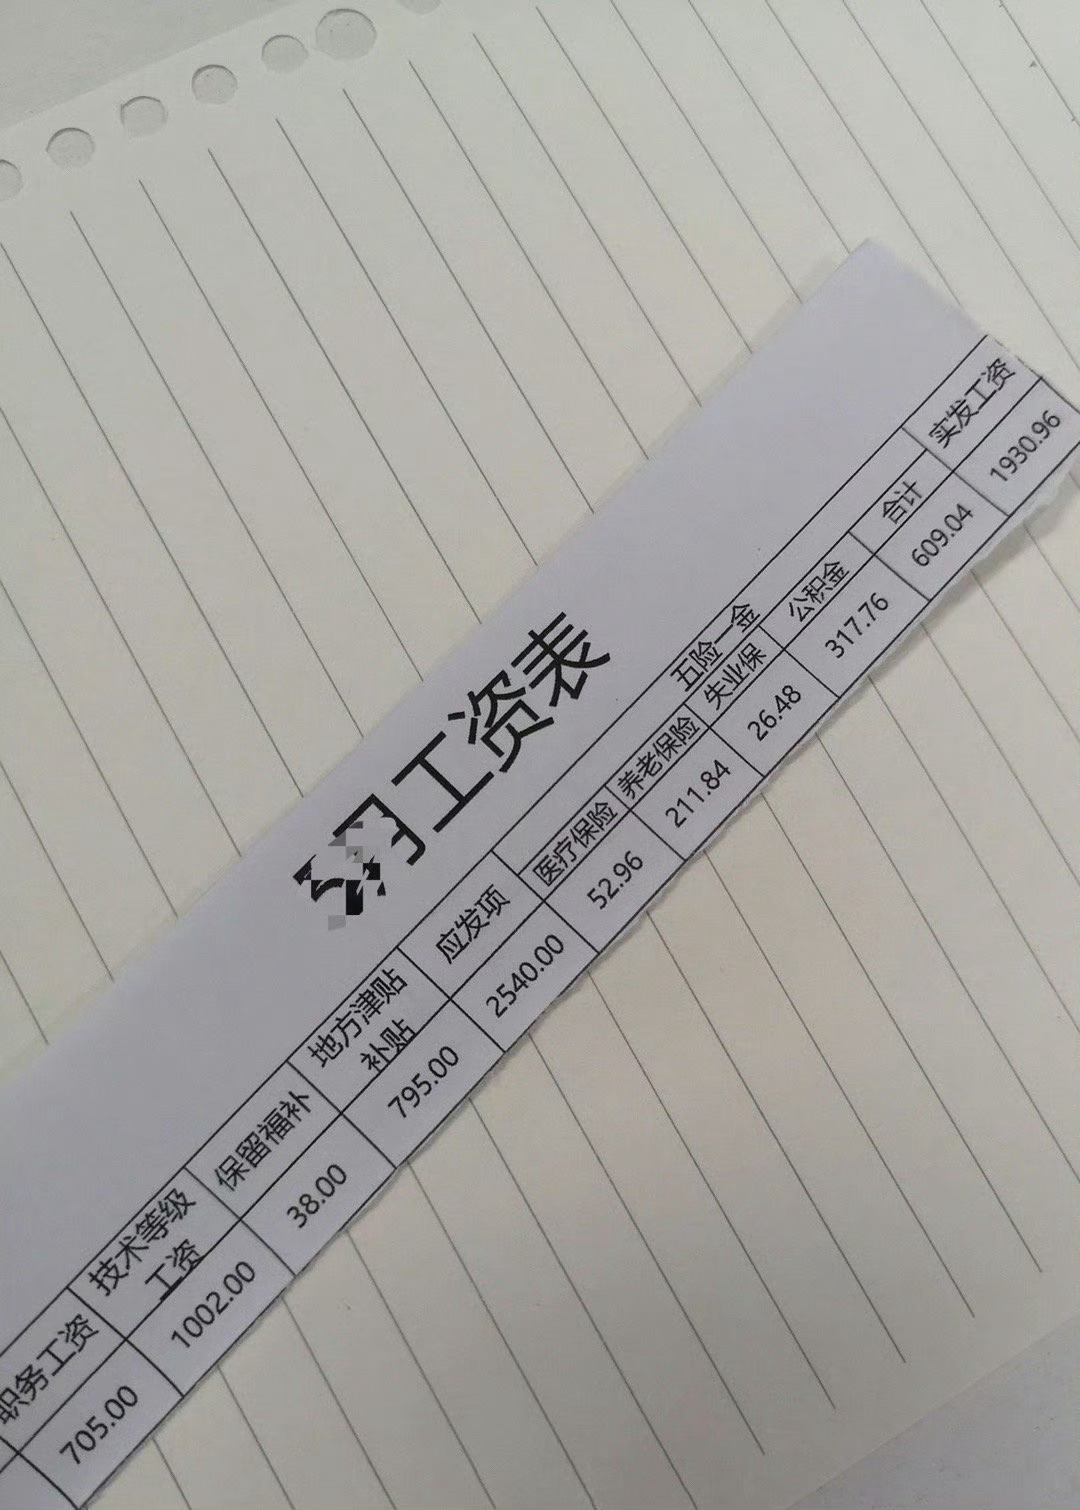 月工资表
职务工资 技术等级工资 保留福补 地方津贴补贴 应发项 五险一金 实发工资
医疗保险 养老保险 失业保 公积金 合计
705.00 1002.00 38.00 795.00 2540.00 52.96 211.84 26.48 317.76 609.04 1930.96